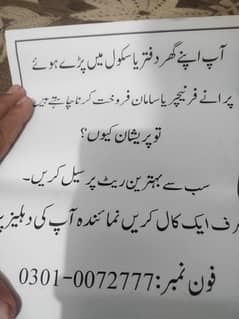 آپ اپنے گھر دفتر یا سکول میں پڑے ہوئے
پرانے فرنیچر یا سامان فروخت کرنا چاہتے ہیں
تو پریشان کیوں؟
سب سے بہترین ریٹ پر سیل کریں۔
ایک کال کریں نمائندہ آپ کی دہلیز
فون نمبر: 0301-0072777